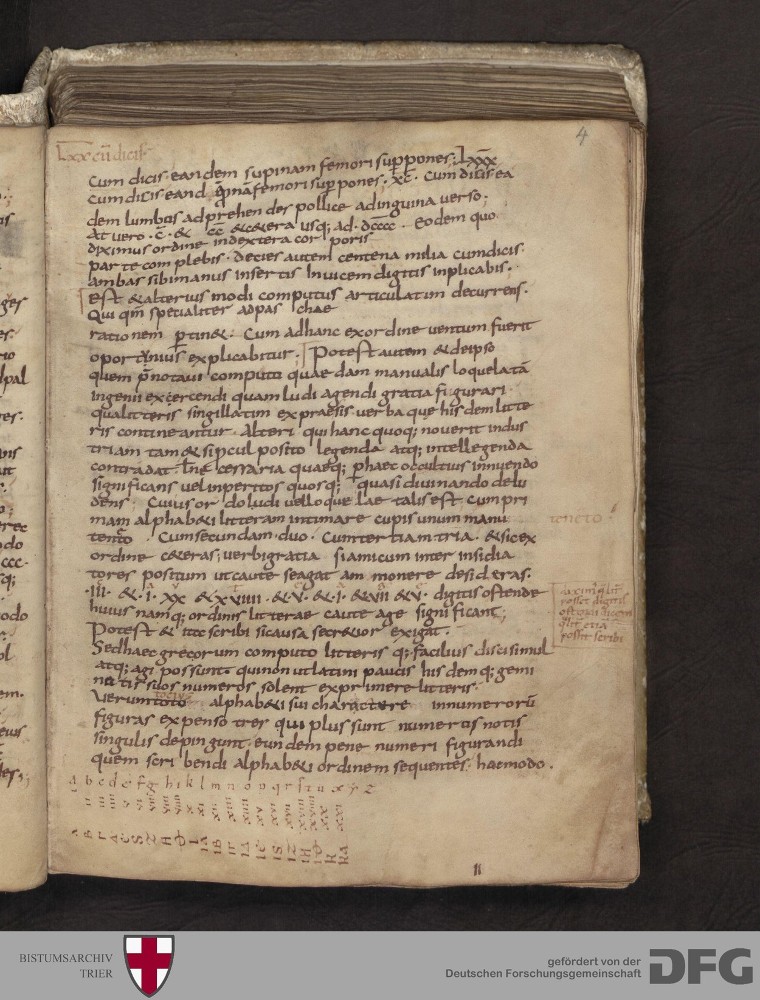 4
Lxx cū dicis
Cum dicis eandem supinam femori suppones. Lxxx
Cum dicis eand p̄nā femori suppones. xc. Cum dicis ea
dem lumbos adprehendes pollice adinguina verso;
At vero .c̄. & cc̄ &cetera usq; ad. dcccc. eodem quo
diximus ordine indextera corporis
parte complebis. Decies autem centena milia cumdicis
ambas sibimanus insertis Invicem digitis inplicabis.
Est &alterius modi computus articulatim decurrens.
Qui qm̄ specialiter adpas chae
rationem ptin&. Cum adhanc exordine ventum fuerit
oportunius explicabitur. Potest autem &deipso
quem p̄notavi computo quaedam manualis loquelatā
ingenii exercendi quam ludi agendi gratia figurari
qualitteris singillatim expraesis verba que hisdem litte
ris contineantur. Alteri qui hanc quoq; noverit indus
triam tam&si procul posito legenda atq; intellegenda
contradat. necessaria quaeq; p̄haec occultius innuendo
significans vel inperitos quosq; quasi divinando delu
dens. Cuius ordo ludi vel loquelae talis est. Cum pri
mam alphab&i litteram intimare cupis unum manu
teneto. Cum secundam. duo. Cum tertiam tria. &sic ex
teneto
ordine c&eras; verbi gratia si amicum inter insidia
tores positum ut caute se agat ammonere desideras.
.III. &. I. xx &xvIIII &.v. &. I. &vII &v. digitis ostende
huius namq; ordinis litterae caute age significant;
Potest & ita scribi sicausa secr&ior exigat.
Sed haec grecorum computo litteris q; facilius disci simul
atq; agi possunt. qui non ut latini paucis hisdem q; gemi
natis suos numeros solent exprimere litteris.
Verum toto alphab&i sui charactere innumerorū
figuras expenso tres qui plus sunt numeros notis
singulis depingunt. eundem pene numeri figurandi
quem scribendi alphab&i ordinem sequentes. haemodo.
a b c d e f g h i k l m n o p q r s t u x y z
II
BISTUMSARCHIV
TRIER
gefördert von der
Deutschen Forschungsgemeinschaft
DFG